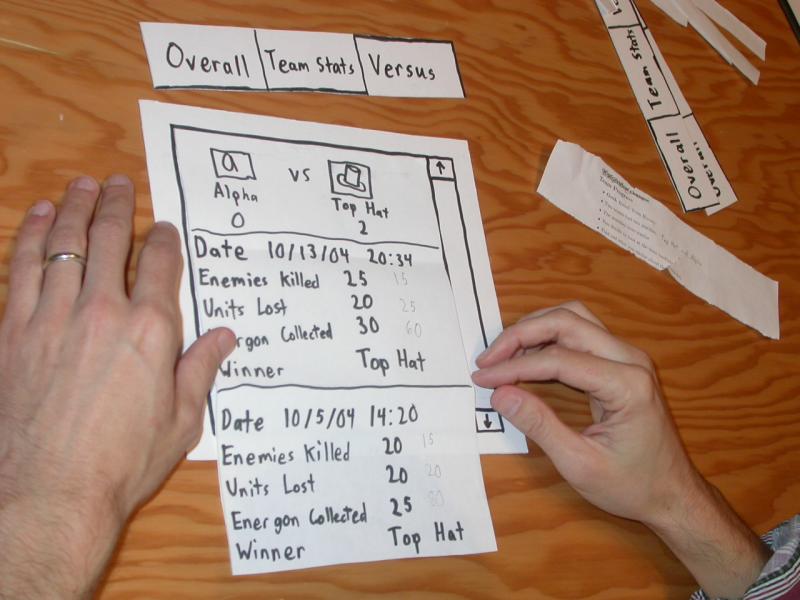 Overall Team Stats Versus
a
Alpha vs Top Hat
0 2
Date 10/13/04 20:34
Enemies Killed 25 15
Units Lost 20 25
ergon Collected 30 60
Winner Top Hat
Date 10/5/04 14:20
Enemies Killed 20 15
Units Lost 20 20
Energon Collected 25
Winner Top Hat
Team Stats
Overall
Overall
Team Progress